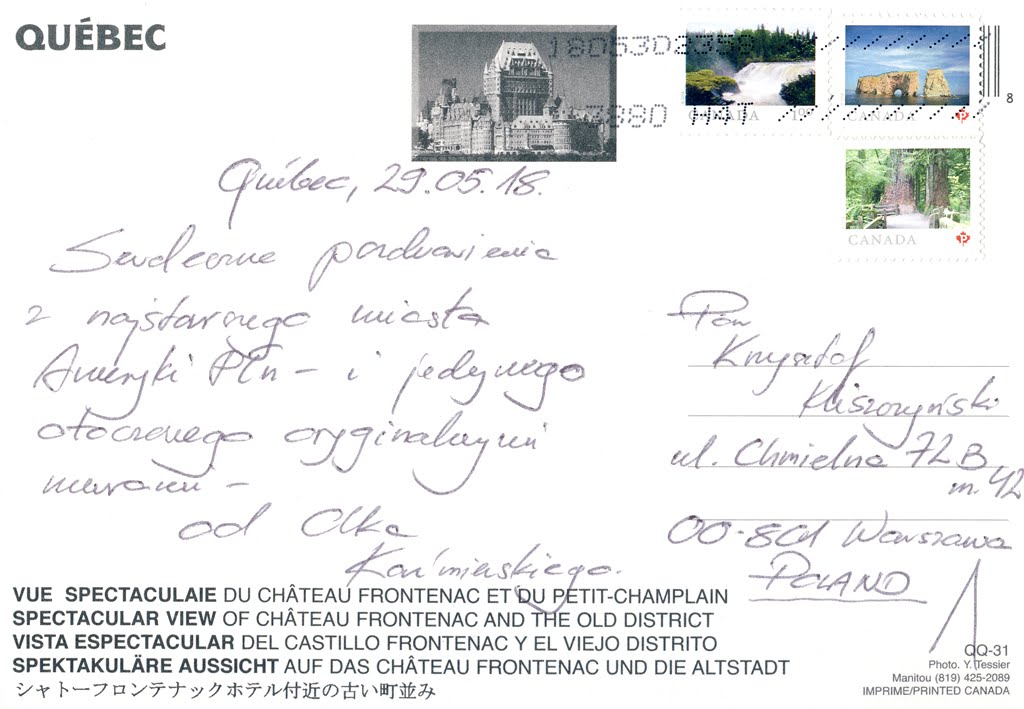 QUÉBEC
1805302358
3880 HAT
CANADA
CANADA P
8
CANADA P
Québec, 29.05.18.
Serdeczne pozdrowienia
z najstarszego miasta
Ameryki Płn – i jedynego
otoczonego oryginalnymi
murami –
od Olka
Kaźmierskiego.
Pan
Krzysztof
Kliszczyński
ul. Chmielna 72B
m. 42
00-801 Warszawa
POLAND
VUE SPECTACULAIE DU CHÂTEAU FRONTENAC ET DU PETIT-CHAMPLAIN
SPECTACULAR VIEW OF CHÂTEAU FRONTENAC AND THE OLD DISTRICT
VISTA ESPECTACULAR DEL CASTILLO FRONTENAC Y EL VIEJO DISTRITO
SPEKTAKULÄRE AUSSICHT AUF DAS CHÂTEAU FRONTENAC UND DIE ALTSTADT
シャトーフロンテナックホテル付近の古い町並み
QQ-31
Photo. Y. Tessier
Manitou (819) 425-2089
IMPRIME/PRINTED CANADA